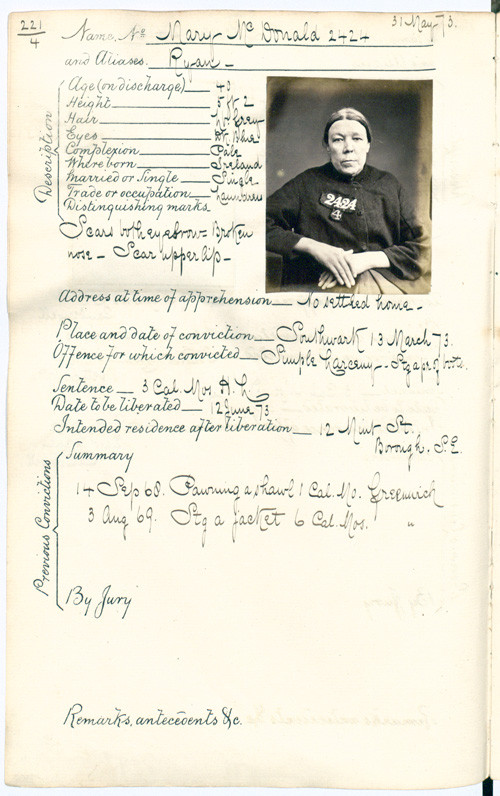 221
4
31 May 73.
Name, No Mary McDonald 2424
and Aliases. Ryan –
Description
Age (on discharge) 40
Height 5 ft 2
Hair Lt Grey
Eyes Dk Blue
Complexion Pale
Where born Ireland
Married or Single Single
Trade or occupation Laundress
Distinguishing marks
Scars both eyebrow – Broken
nose – Scar upper lip –
2424
4
Address at time of apprehension No settled home –
Place and date of conviction Southwark 13 March 73.
Offence for which convicted Simple Larceny – Stg a pr. of boots.
Sentence 3 Cal. Mos H. L
Date to be liberated 12 June 73
Intended residence after liberation 12 Mint St.,
Borough. S.E.
Previous Convictions
Summary
14 Sep 68. Pawning a shawl 1 Cal. Mo. Greenwich
3 Aug 69. Stg a jacket 6 Cal. Mos. "
By Jury
Remarks, antecedents &c.